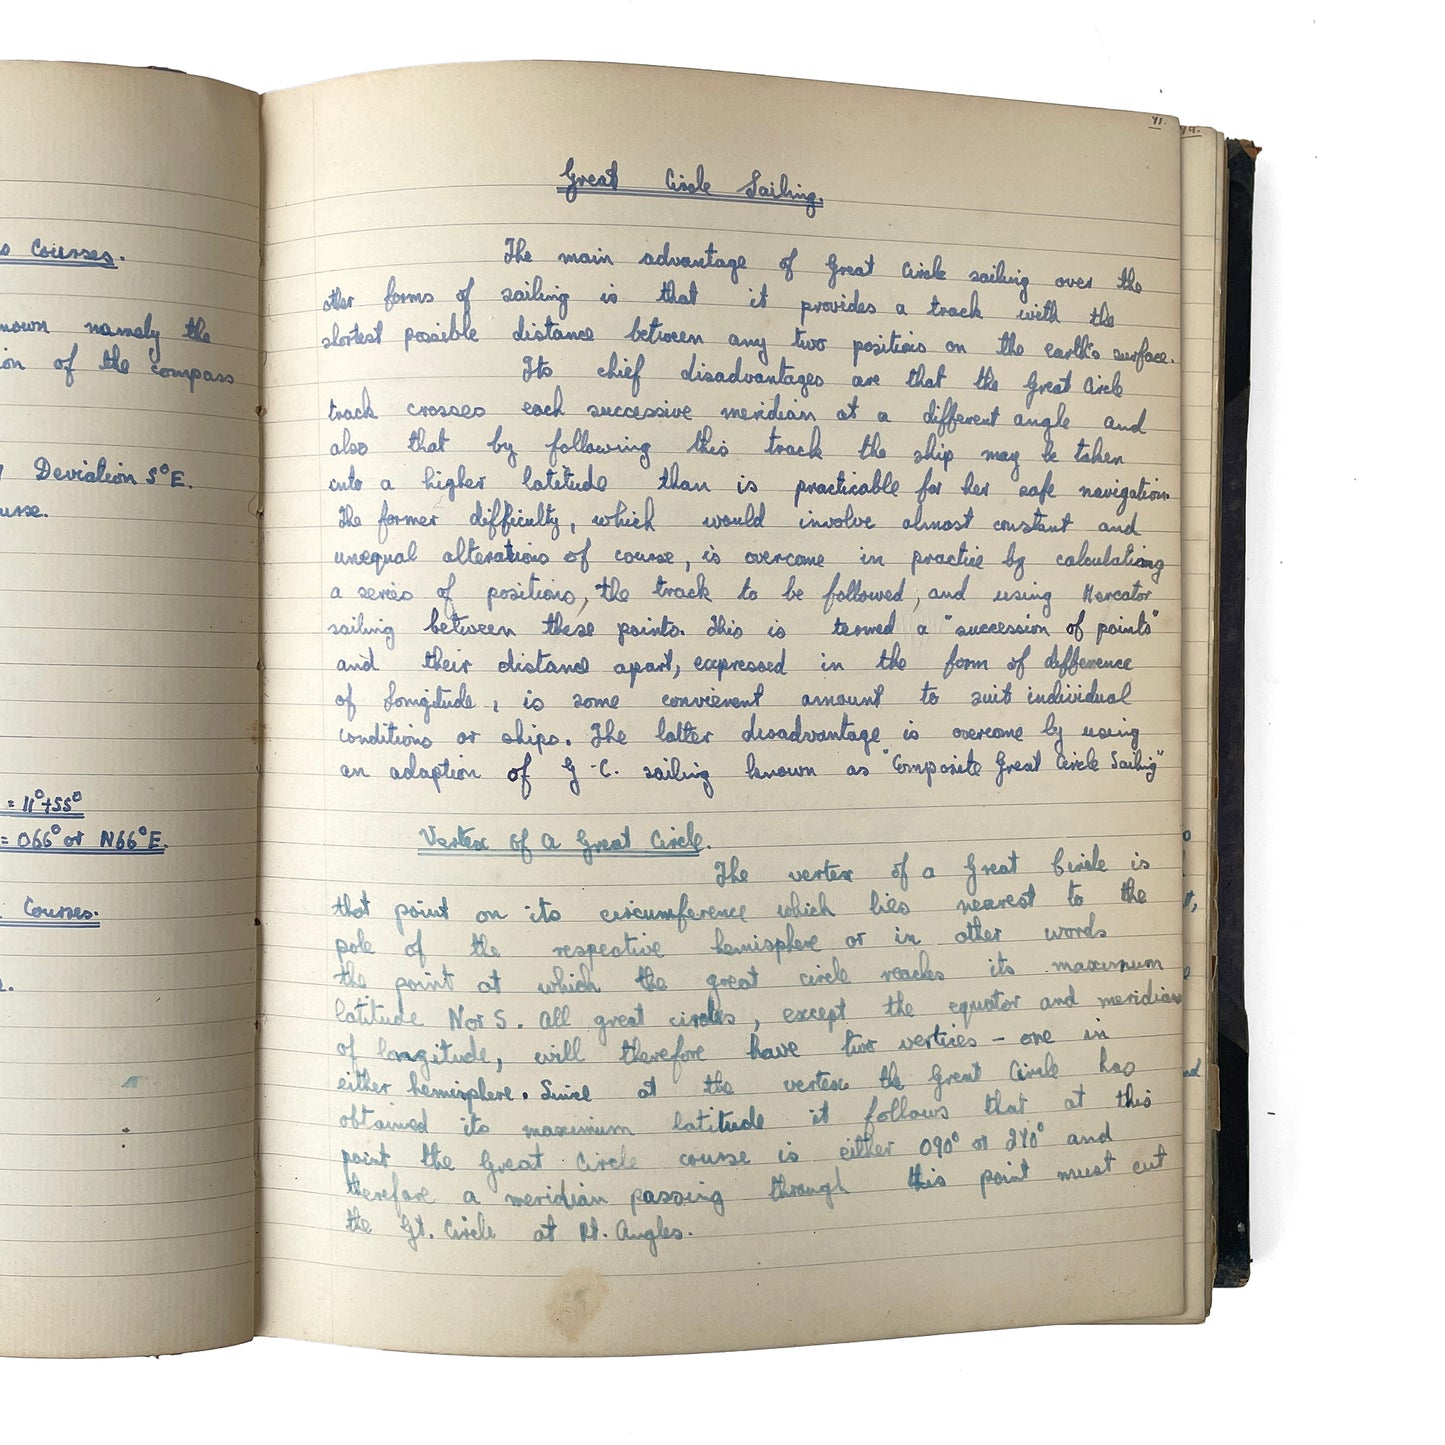 Courses.
nown namely the
ion of the compass
Deviation 5°E.
urse.
= 11°+55°
= 066° or N66°E.
Courses.
Great Circle Sailing.
The main advantage of Great Circle sailing over the
other forms of sailing is that it provides a track with the
shortest possible distance between any two positions on the earth's surface.
Its chief disadvantages are that the Great Circle
track crosses each successive meridian at a different angle and
also that by following this track the ship may be taken
into a higher latitude than is practicable for her safe navigation.
The former difficulty, which would involve almost constant and
unequal alterations of course, is overcome in practice by calculating
a series of positions, the track to be followed, and using Mercator
sailing between these points. This is termed a "succession of points"
and their distance apart, expressed in the form of difference
of Longitude, is some convienent amount to suit individual
conditions or ships. The latter disadvantage is overcome by using
an adaption of G.C. sailing known as "Composite Great Circle Sailing"
Vertex of a Great Circle.
The vertex of a Great Circle is
that point on its circumference which lies nearest to the
pole of the respective hemisphere or in other words
the point at which the great circle reaches its maximum
latitude N or S. All great circles, except the equator and meridian
of longitude, will therefore have two vertices - one in
either hemisphere. Since at the vertex the Great Circle has
obtained its maximum latitude it follows that at this
point the Great Circle course is either 090° or 270° and
therefore a meridian passing through this point must cut
the Gt. Circle at Rt. Angles.